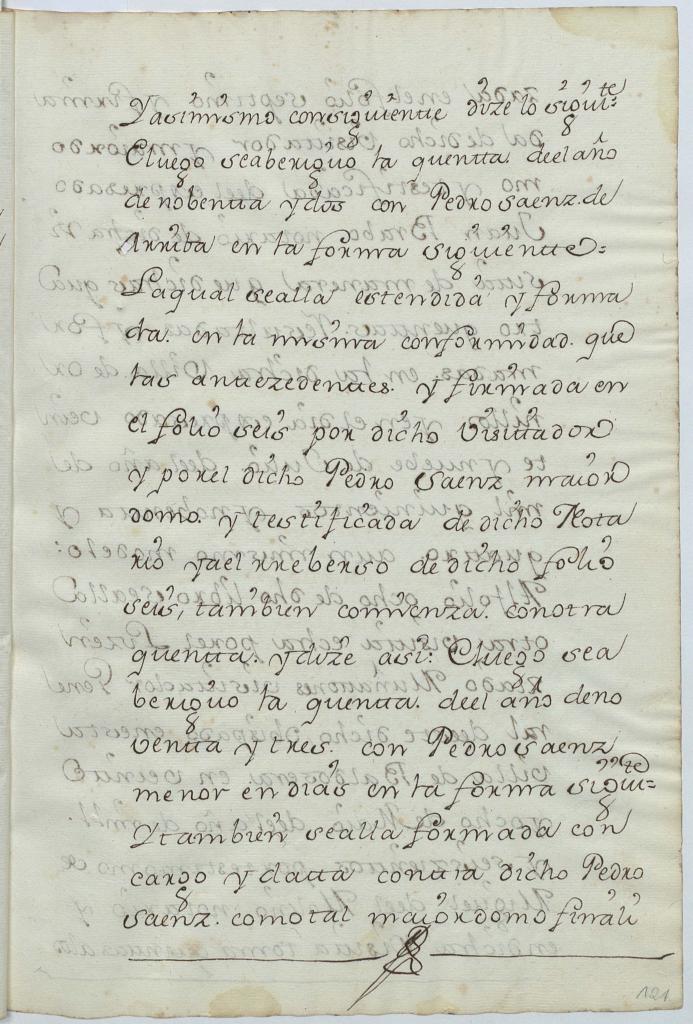 Yasimismo consiguiente dize lo siguite=
Eluego seaberiguo la quentta. deel año
de nobentta ydos con Pedro saenz. de
Arriba en la forma siguiente=
Laqual sealla estendida y forma
da. en la misma conformidad. que
las antezedentes. y firmada en
el folio seis por dicho Visittador
y porel dicho Pedro Saenz maior
domo. y testificada de dicho Nota
rio yael rreberso de dicho folio
seis, tambien comienza. conotra
quentta. ydize asi: Eluego sea
beriguo la quentta. deel año deno
ventta y tres. con Pedro Saenz
menor en dias en la forma siguite=
Ytambien sealla formada con
cargo y datta contra dicho Pedro
saenz. comotal maiordomo finali
121